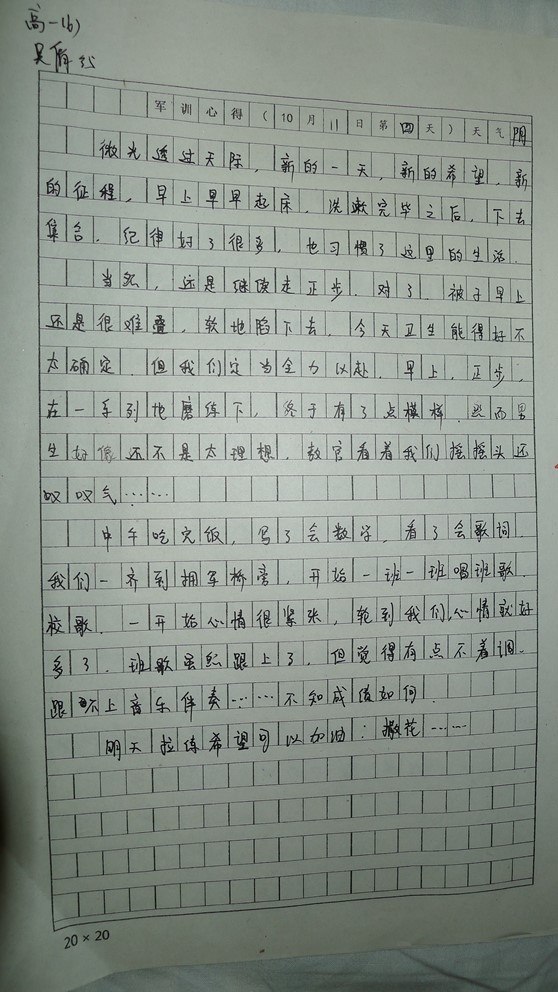 高一(6)
吴
军训心得(10月11日第四天)天气阴
微光透过天际,新的一天,新的希望,新
的征程,早上早早起床,洗漱完毕之后,下去
集合.纪律好了很多,也习惯了这里的生活.
当然,还是继续走正步.对了.被子早上
还是很难叠,软地陷下去,今天卫生能得好不
太确定.但我们定当全力以赴.早上,正步,
在一系列地磨练下,终于有了点模样.然而男
生好像还不是太理想,教官看着我们摇摇头还
叹叹气……
中午吃完饭,写了会数学,看了会歌词.
我们一齐到拥军桥旁,开始一班一班唱班歌.
校歌.一开始心情很紧张,轮到我们,心情就好
多了.班歌虽然跟上了,但觉得有点不着调.
跟不上音乐伴奏……不知成绩如何.
明天拉练希望可以加油:撒花……
20×20